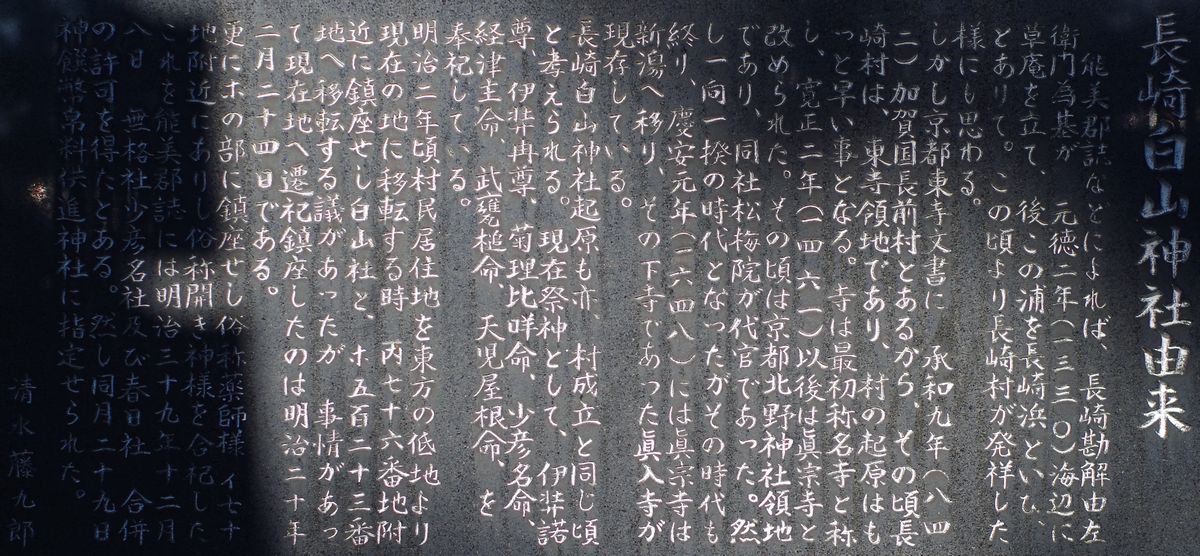 長崎白山神社由来
能美郡誌などによれば、長崎勘解由左
衛門為基が　元徳二年(一三三〇)海辺に
草庵を立て、後この浦を長崎浜といひ、
とありて。この頃より長崎村が発祥した
様にも思わる。
しかし京都東寺文書に　承和九年(八四
二)加賀国長前村とあるから、その頃長
崎村は、東寺領地であり、村の起原はも
っと早い事となる。寺は最初称名寺と称
し、寛正二年(一四六一)以後は眞宗寺と
改められた。その頃は京都北野神社領地
であり、同社松梅院が代官であった。然
し一向一揆の時代となったがその時代も
終り、慶安元年(一六四八)には眞宗寺は
新湯へ移り、その下寺であった眞入寺が
現存している。
長崎白山神社起原も亦、村成立と同じ頃
と考えられる。現在祭神として、伊弉諾
尊、伊弉冉尊、菊理比咩命、少彦名命、
経津主命、武甕槌命、天児屋根命、を
奉祀している。
明治二年頃村民居住地を東方の低地より
現在の地に移転する時　丙七十六番地附
近に鎮座せし白山社と、ホ五百二十三番
地へ移転する議があったが　事情があっ
て現在地へ遷祀鎮座したのは明治二十年
二月二十四日である。
更にホの部に鎮座せし俗称薬師様　イ七十
地附近にありし俗称開き神様を合祀した
これを能美郡誌には明治三十九年十二月
八日　無格社少彦名社及び春日社　合併
の許可を得たとある。然し同月二十九日
神饌幣帛料供進神社に指定せられた。
清水藤九郎